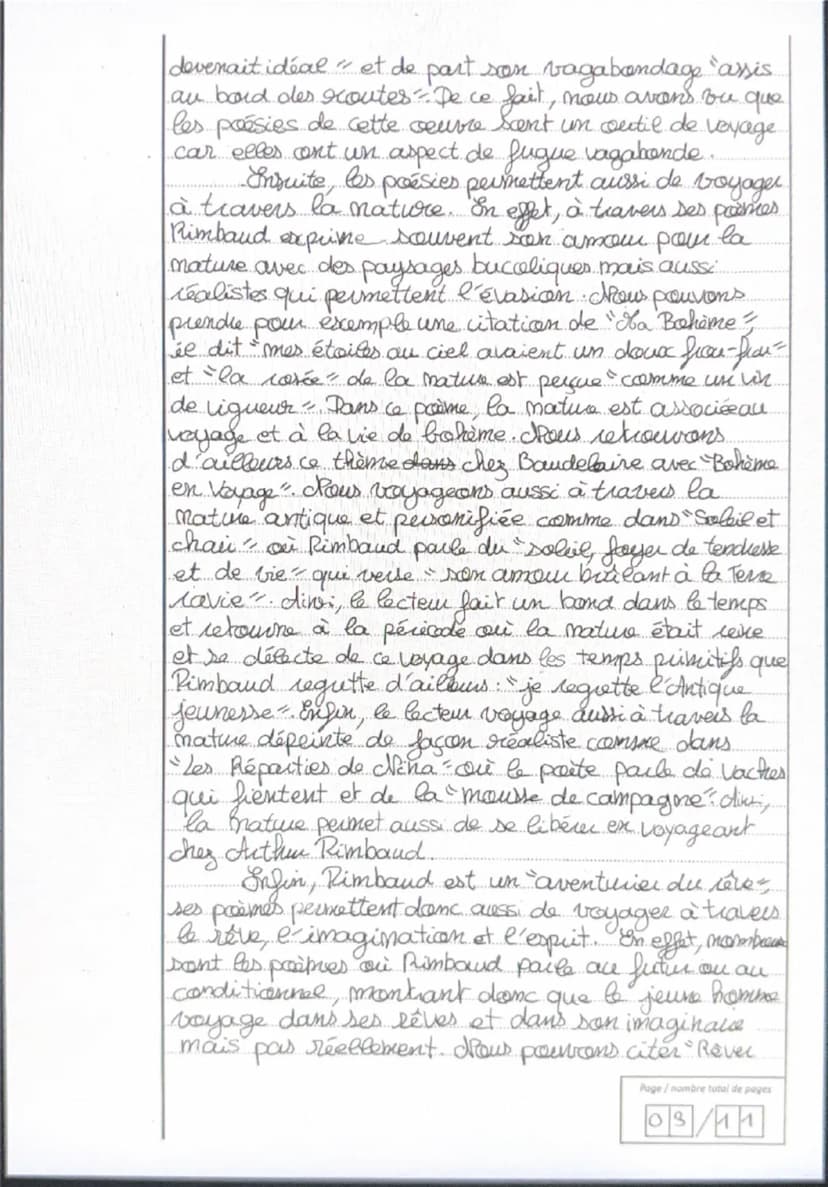 devenait idéal" et de part son vagabondage "assis
au bord des routes". De ce fait, nous avons vu que
les poésies de cette oeuvre sont un outil de voyage
car elles ont un aspect de fugue vagabonde.
Ensuite, les poésies permettent aussi de voyager
à travers la nature. En effet, à travers ses poèmes
Rimbaud exprime souvent son amour pour la
nature avec des paysages bucoliques mais aussi
réalistes qui permettent l'évasion. Nous pouvons
prendre pour exemple une citation de "Ma Bohème",
il dit "mes étoiles au ciel avaient un doux frou-frou"
et "la rosée" de la nature est perçue "comme un vin
de vigueur". Dans ce poème, la nature est associée au
voyage et à la vie de bohème. Nous retrouvons
d'ailleurs ce thème dans chez Baudelaire avec "Bohème
en Voyage". Nous voyageons aussi à travers la
nature antique et personifiée comme dans "Soleil et
chair" où Rimbaud parle du "soleil, foyer de tendresse
et de vie" qui verse "son amour brûlant à la Terre
ravie". Ainsi, le lecteur fait un bond dans le temps
et retourne à la période où la nature était reine
et se délecte de ce voyage dans les temps primitifs que
Rimbaud regrette d'ailleurs : "je regrette l'Antique
jeunesse". Enfin, le lecteur voyage aussi à travers la
nature dépeinte de façon réaliste comme dans
"Les Réparties de Nina" où le poète parle de vaches
qui fientent et de la "mousse de campagne". Ainsi,
la nature permet aussi de se libérer en voyageant
chez Arthur Rimbaud.
Enfin, Rimbaud est un "aventurier du rêve",
ses poèmes permettent donc aussi de voyager à travers
le rêve, l'imagination et l'esprit. En effet, nombreux
sont les poèmes où Rimbaud parle au futur ou au
conditionnel, montrant donc que le jeune homme
voyage dans ses rêves et dans son imaginaire
mais pas réellement. Nous pouvons citer "Rêver
Page / nombre total de pages
09/11